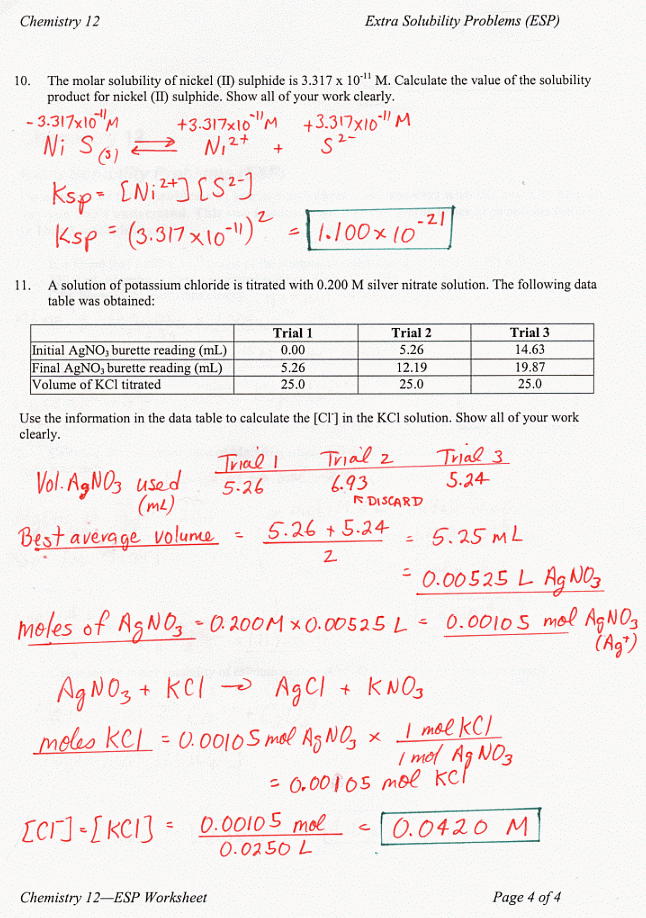 Chemistry 12 Extra Solubility Problems (ESP)
10. The molar solubility of nickel (II) sulphide is 3.317 x 10⁻¹¹ M. Calculate the value of the solubility
product for nickel (II) sulphide. Show all of your work clearly.
-3.317x10⁻¹¹M +3.317x10⁻¹¹M +3.317x10⁻¹¹ M
NiS(s) ⇌ Ni²⁺ + S²⁻
Ksp = [Ni²⁺][S²⁻]
Ksp = (3.317x10⁻¹¹)² = 1.100 x 10⁻²¹
11. A solution of potassium chloride is titrated with 0.200 M silver nitrate solution. The following data
table was obtained:
Trial 1 Trial 2 Trial 3
Initial AgNO₃ burette reading (mL) 0.00 5.26 14.63
Final AgNO₃ burette reading (mL) 5.26 12.19 19.87
Volume of KCl titrated 25.0 25.0 25.0
Use the information in the data table to calculate the [Cl⁻] in the KCl solution. Show all of your work
clearly.
Trial 1 Trial 2 Trial 3
Vol. AgNO₃ used 5.26 6.93 5.24
(mL) ↖ DISCARD
Best average volume = 5.26 + 5.24 / 2 = 5.25 mL
= 0.00525 L AgNO₃
moles of AgNO₃ = 0.200M x 0.00525 L = 0.00105 mol AgNO₃
(Ag⁺)
AgNO₃ + KCl → AgCl + KNO₃
moles KCl = 0.00105 mol AgNO₃ x 1 mol KCl / 1 mol AgNO₃
= 0.00105 mol KCl
[Cl⁻] = [KCl] = 0.00105 mol / 0.0250 L = 0.0420 M
Chemistry 12—ESP Worksheet Page 4 of 4